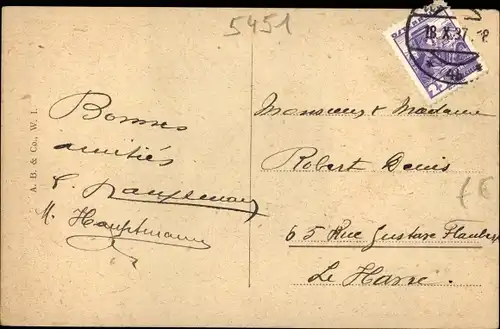 5451
18.X.37
A. B. & Co., W. I.
Bonnes
amitiés
M. Hauptmann
Monsieur & Madame
Robert Denis
65 Rue Gustave Flaubert
Le Havre.